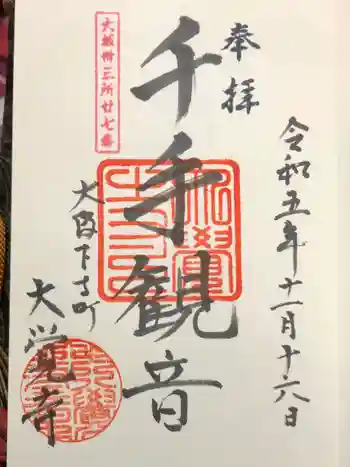 奉拝
令和五年十一月十六日
大坂卅三所廿七番
千手観音
大阪下寺町
大覚寺